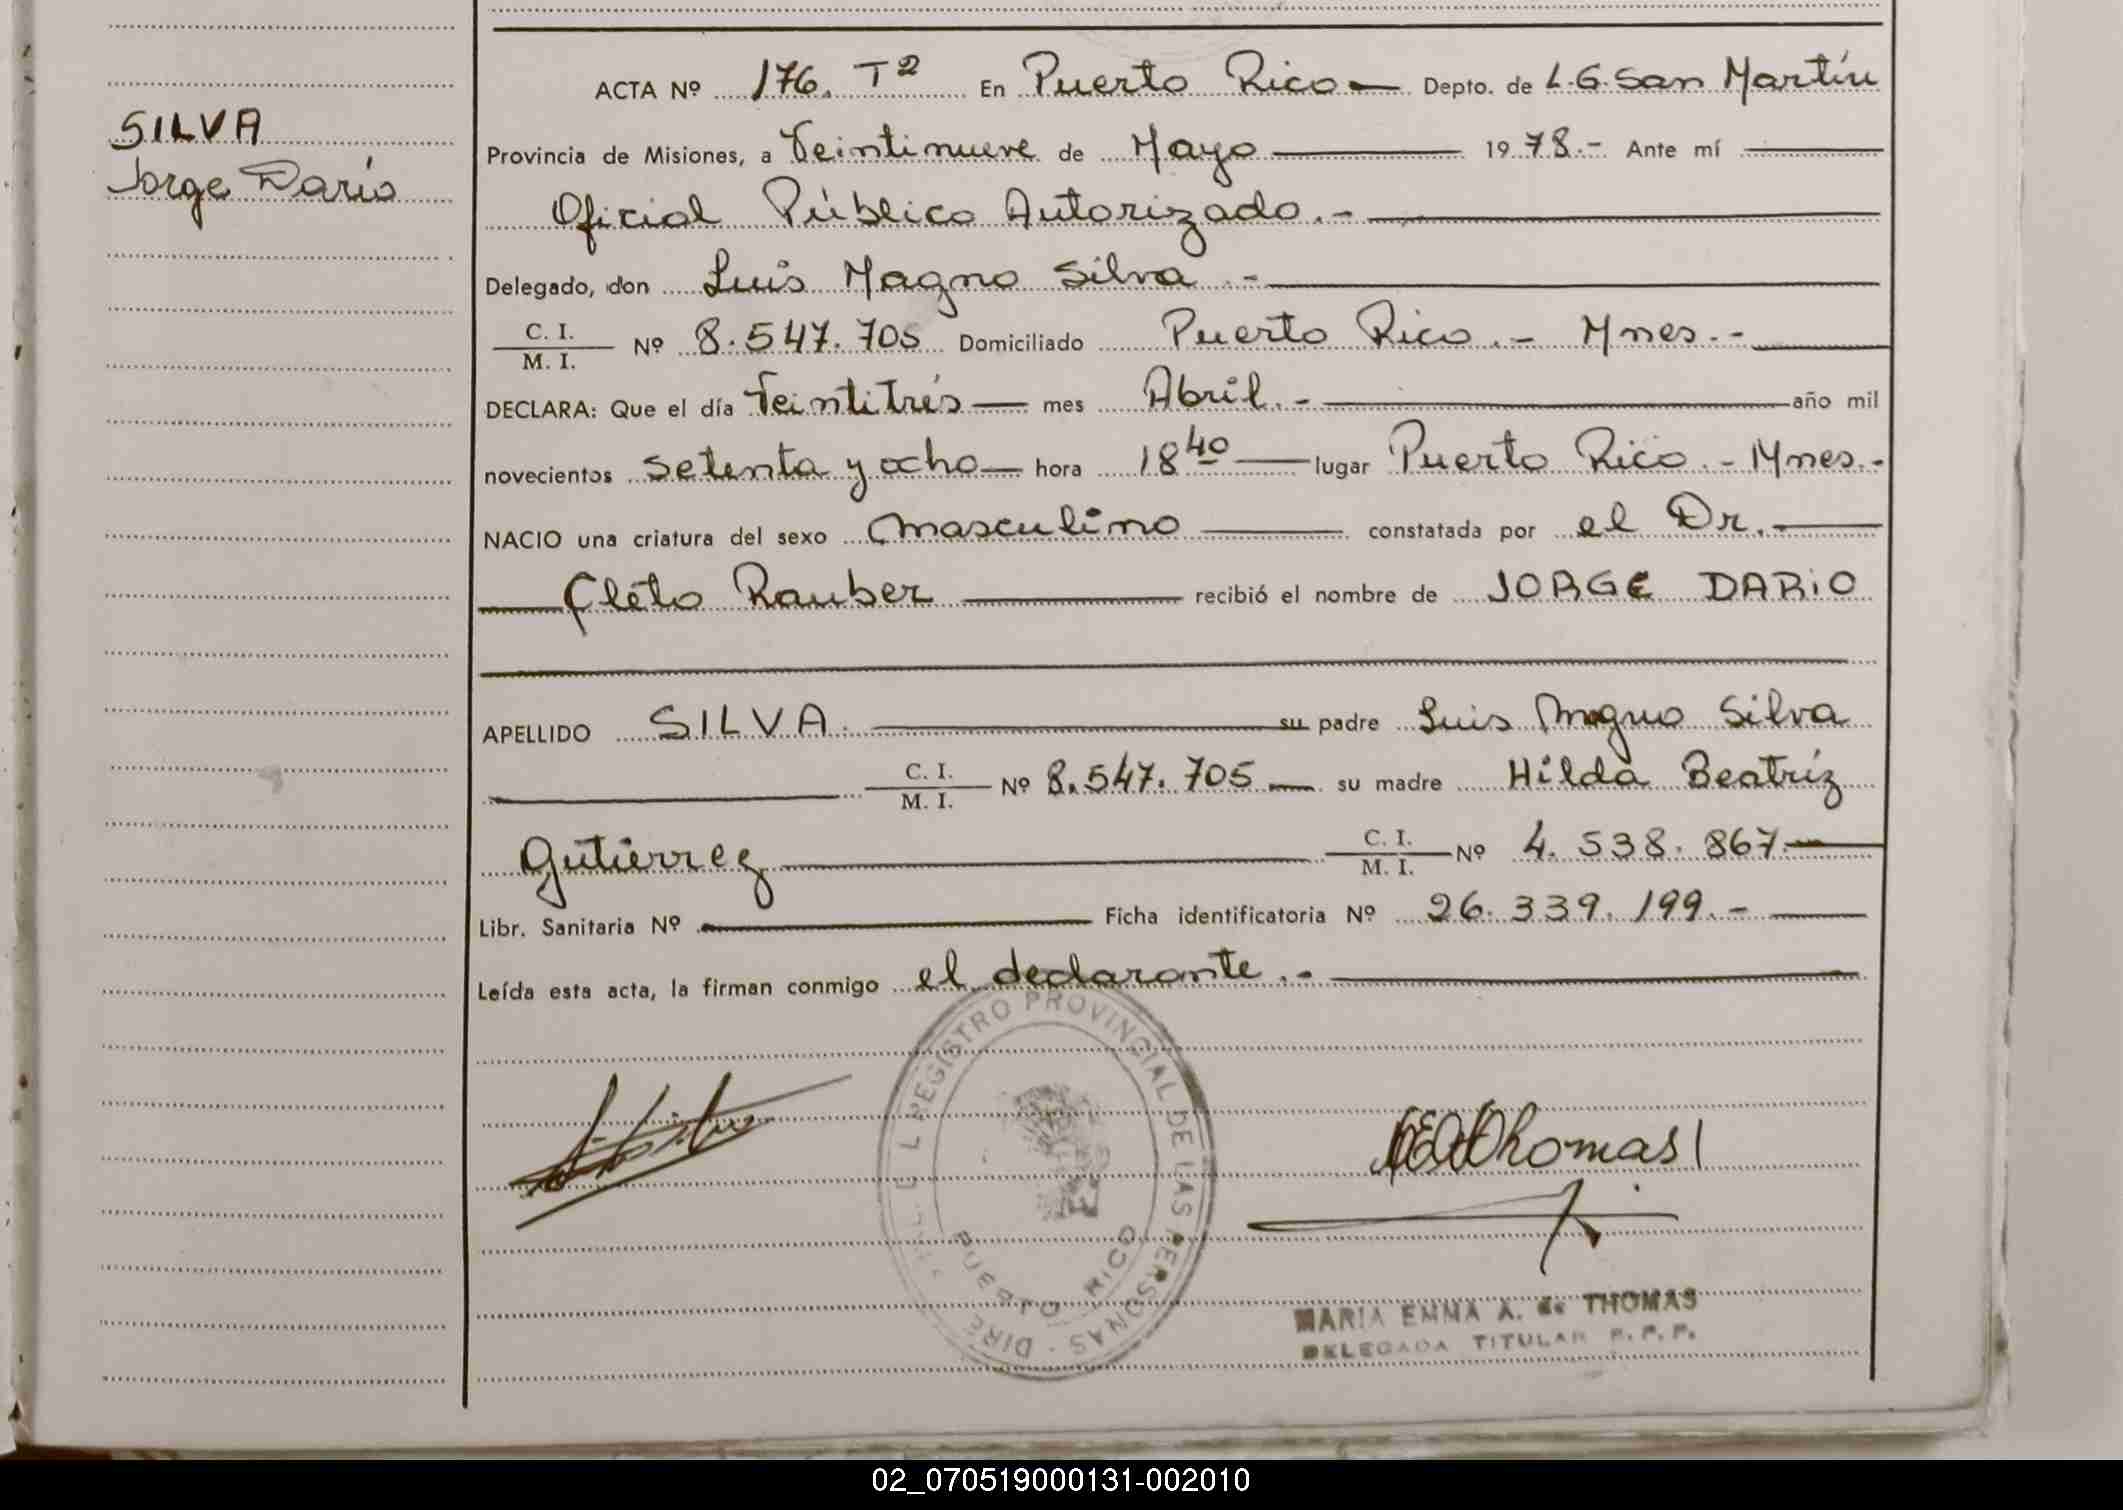 SILVA
Jorge Darío
ACTA Nº 176. Tº En Puerto Rico Depto. de L.G. San Martín
Provincia de Misiones, a Veintinueve de Mayo 1978.- Ante mí
Oficial Público Autorizado.-
Delegado, don Luis Magno Silva.-
C. I.
M. I. Nº 8.547.705 Domiciliado Puerto Rico.- Mnes.-
DECLARA: Que el día Veintitrés mes Abril.- año mil
novecientos setenta y ocho hora 18 40 lugar Puerto Rico.- Mnes.-
NACIO una criatura del sexo masculino constatada por el Dr.
Cléto Rauber recibió el nombre de JORGE DARIO
APELLIDO SILVA. su padre Luis Magno Silva
C. I.
M. I. Nº 8.547.705 su madre Hilda Beatríz
Gutiérrez C. I.
M. I. Nº 4.538.867.
Libr. Sanitaria Nº Ficha identificatoria Nº 26.339.199.-
Leída esta acta, la firman conmigo el declarante.-
REGISTRO PROVINCIAL DE LAS PERSONAS
PUERTO RICO
Thomas
MARIA EMMA A. de THOMAS
DELEGADA TITULAR R. P. P.
02_070519000131-002010